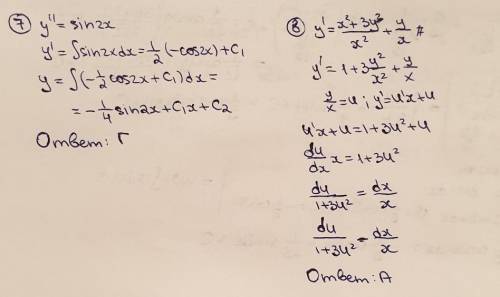 ⑦ y'' = sin2x
y' = ∫sin2xdx = 1/2 (-cos2x) + C₁
y = ∫(-1/2 cos2x + C₁)dx =
= -1/4 sin2x + C₁x + C₂
Ответ: Г
⑧ y' = (x² + 3y²)/x² + y/x #
y' = 1 + 3 y²/x² + y/x
y/x = u ; y' = u'x + u
u'x + u = 1 + 3u² + u
du/dx x = 1 + 3u²
du/(1 + 3u²) = dx/x
du/(1 + 3u²) = dx/x
Ответ: А